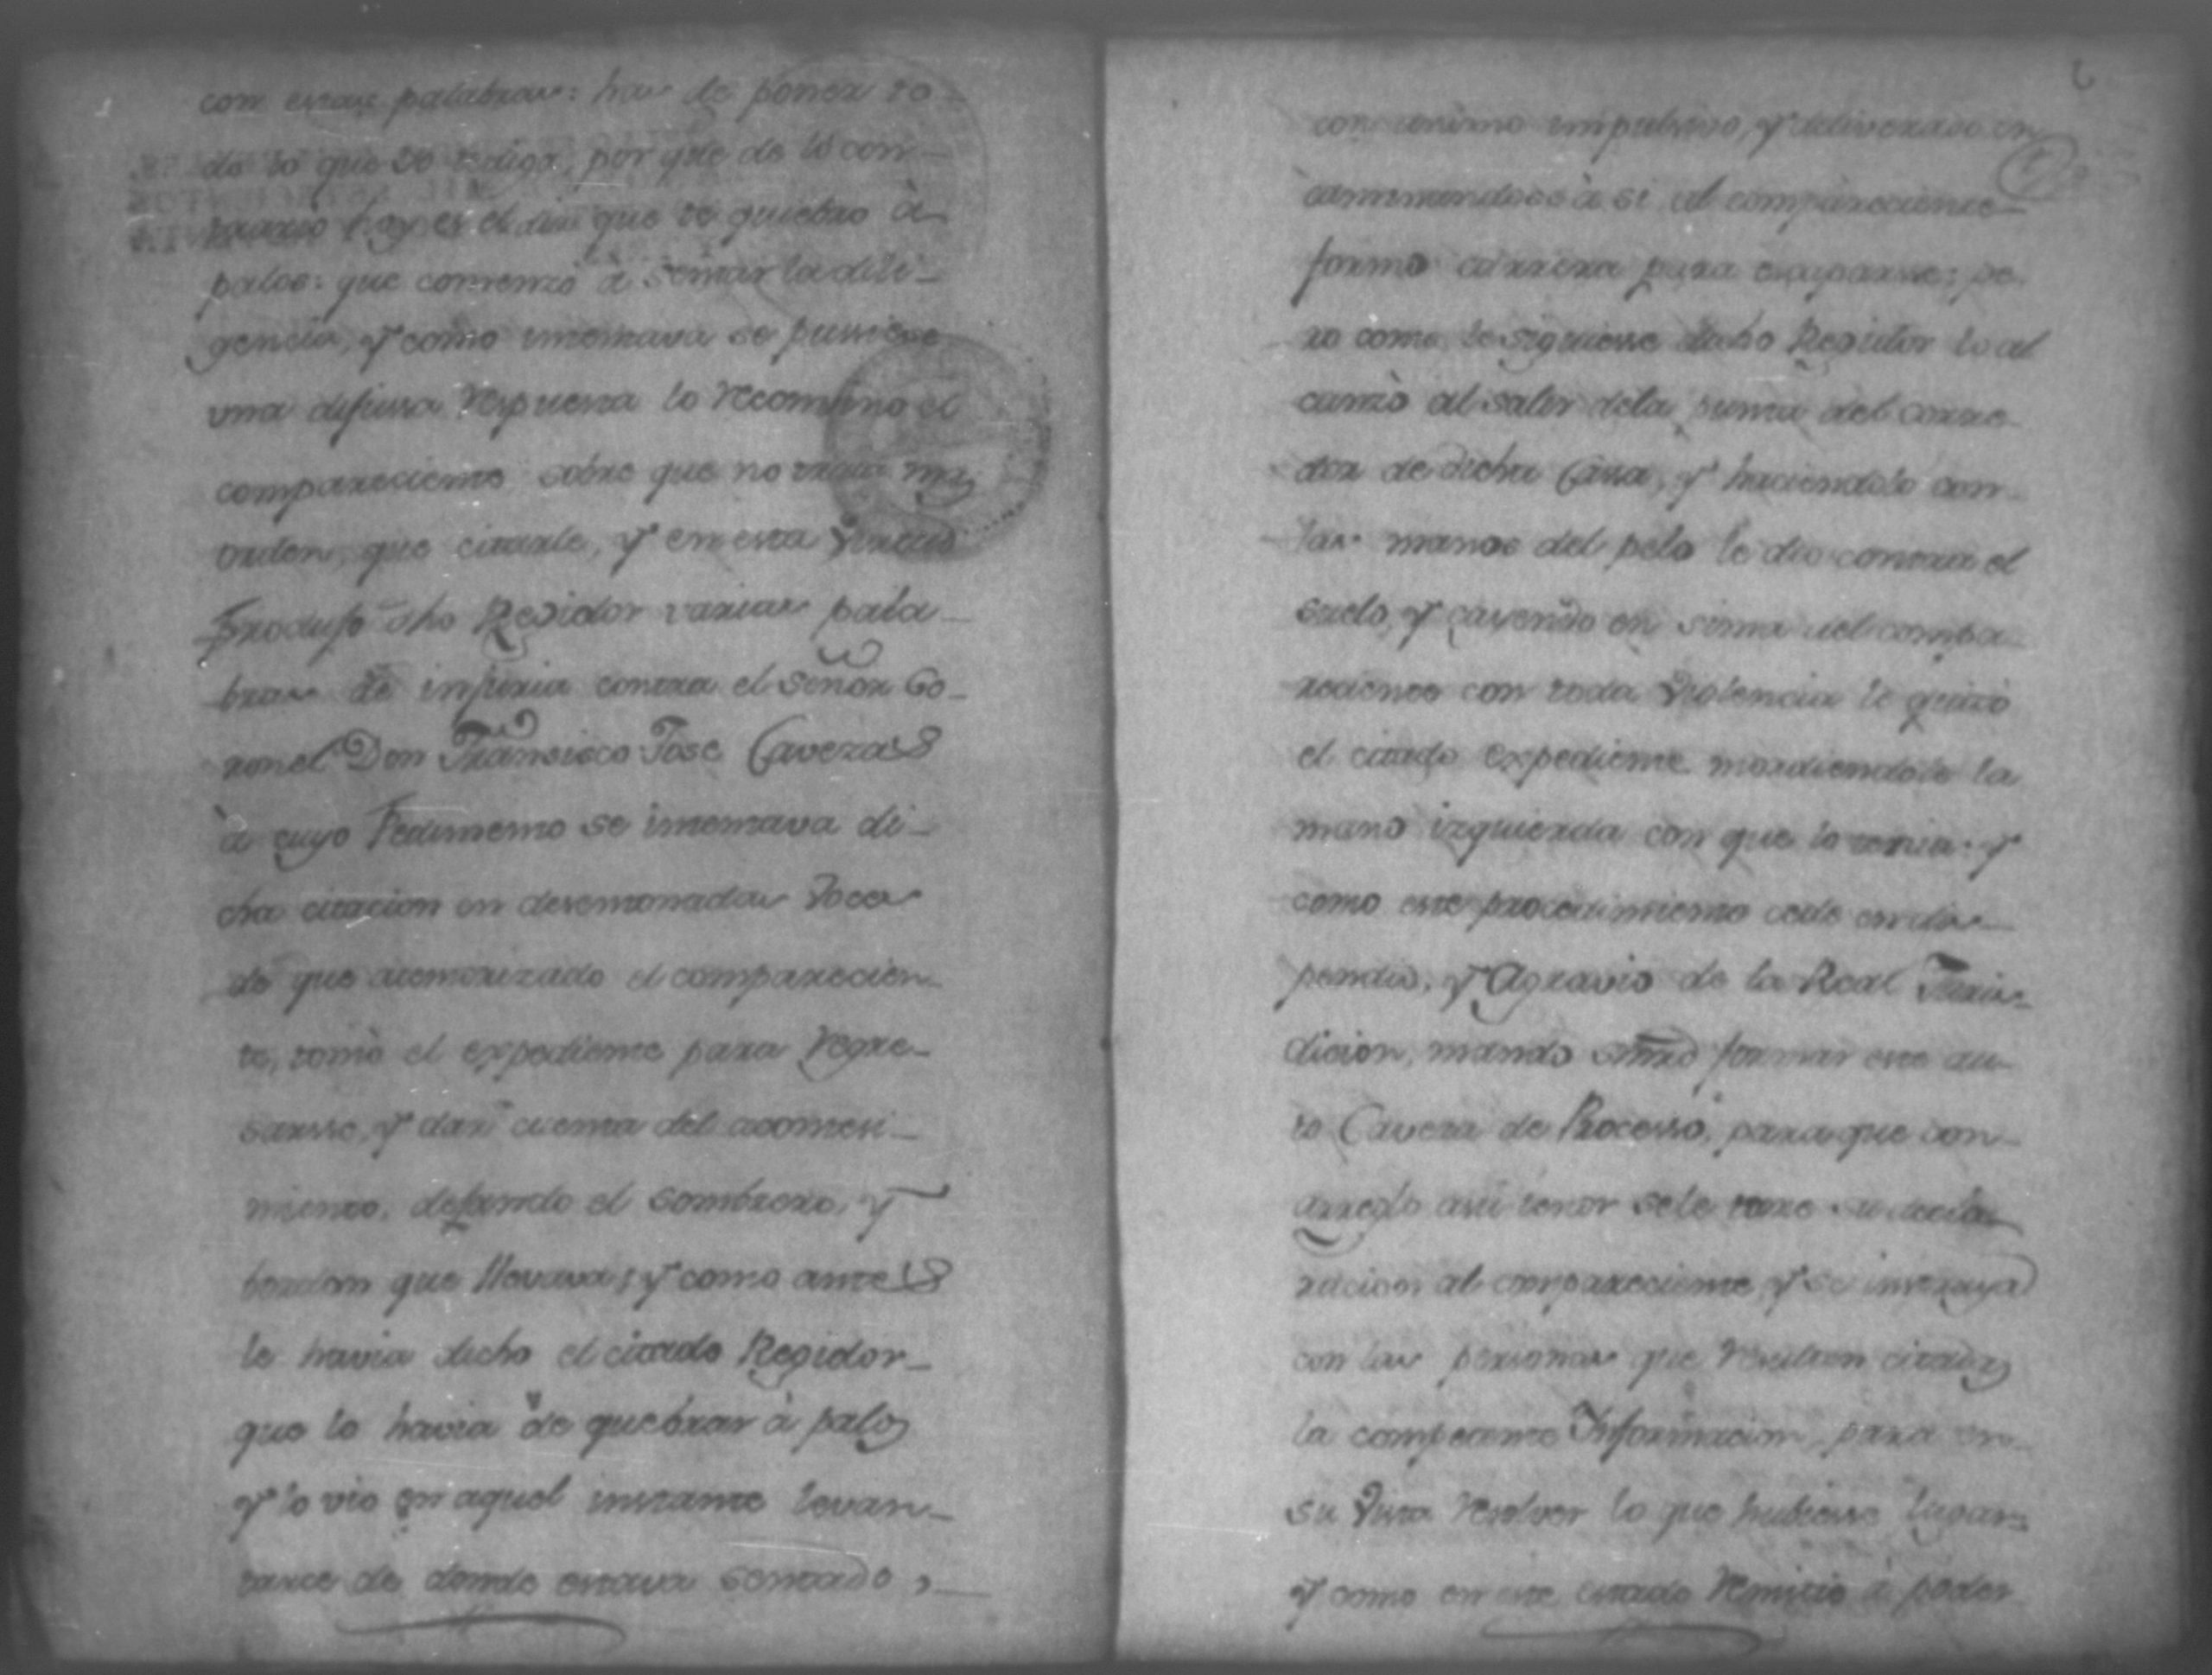 con estas palabras: has de poner to-
do lo que yo te diga, por que de lo con-
trario hoy es el dia que te quiebro à
palos: que comenzó à sentar la dili-
gencia, y como intentava se pussiese
una difussa respuesta lo recombino el
compareciente sobre que no traia mas
orden, que citarle, y en esta virtud
Produjo dho Regidor varias pala-
bras de injuria contra el Señor Co-
ronel Don Fransisco Jose Cavezas
à cuyo Pedimento se intentava di-
cha citacion en desentonadas voces
de que atemorizado el comparecien-
te, tomò el expediente para regre-
sarsse, y dar cuenta del acometi-
miento, dejando el sombrero, y
baston que llevava; y como antes
le havia dicho el citado Regidor-
que lo havia de quebrar à palos
y lo vio en aquel instante levan-
tarse de donde estava sentado,
con animo impulsivo, y deliverado en
caminandose à si al compareciente
formó carrera para escaparsse; pe-
ro como le siguiesse dicho Regidor lo al
canzò al salir dela punta del corre-
dor de dicha Cassa, y haciendolo con
las manos del pelo le dio contra el
suelo, y cayendo en sima del compa-
reciente con toda violencia le quitò
el citado expediente mordiendole la
mano izquierda con que lo tenia: y
como este procedimiento cede en dis-
pendio, y Agravio de la Real Juris-
dicion, mando smrd formar este au-
to Caveza de Processo, para que con
arreglo asu tenor sele tome su decla
racion al compareciente, y se instruya
con las personas que resulten citadas
la competente Informacion, para en
su vista resolver lo que hubiesse lugar
y como en este estado remitio à poder